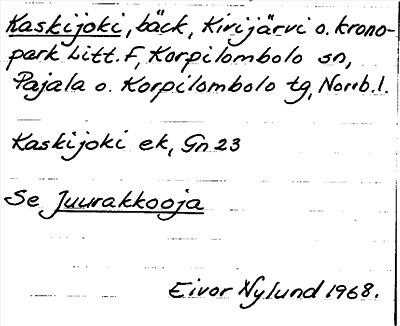 Kaskijoki, bäck, Kirijärvi o. krono-
park Litt. F, Korpilombolo sn,
Pajala o. Korpilombolo tg, Norrb. l.
Kaskijoki ek, Gn 23
Se Juurakkooja
Eivor Nylund 1968.